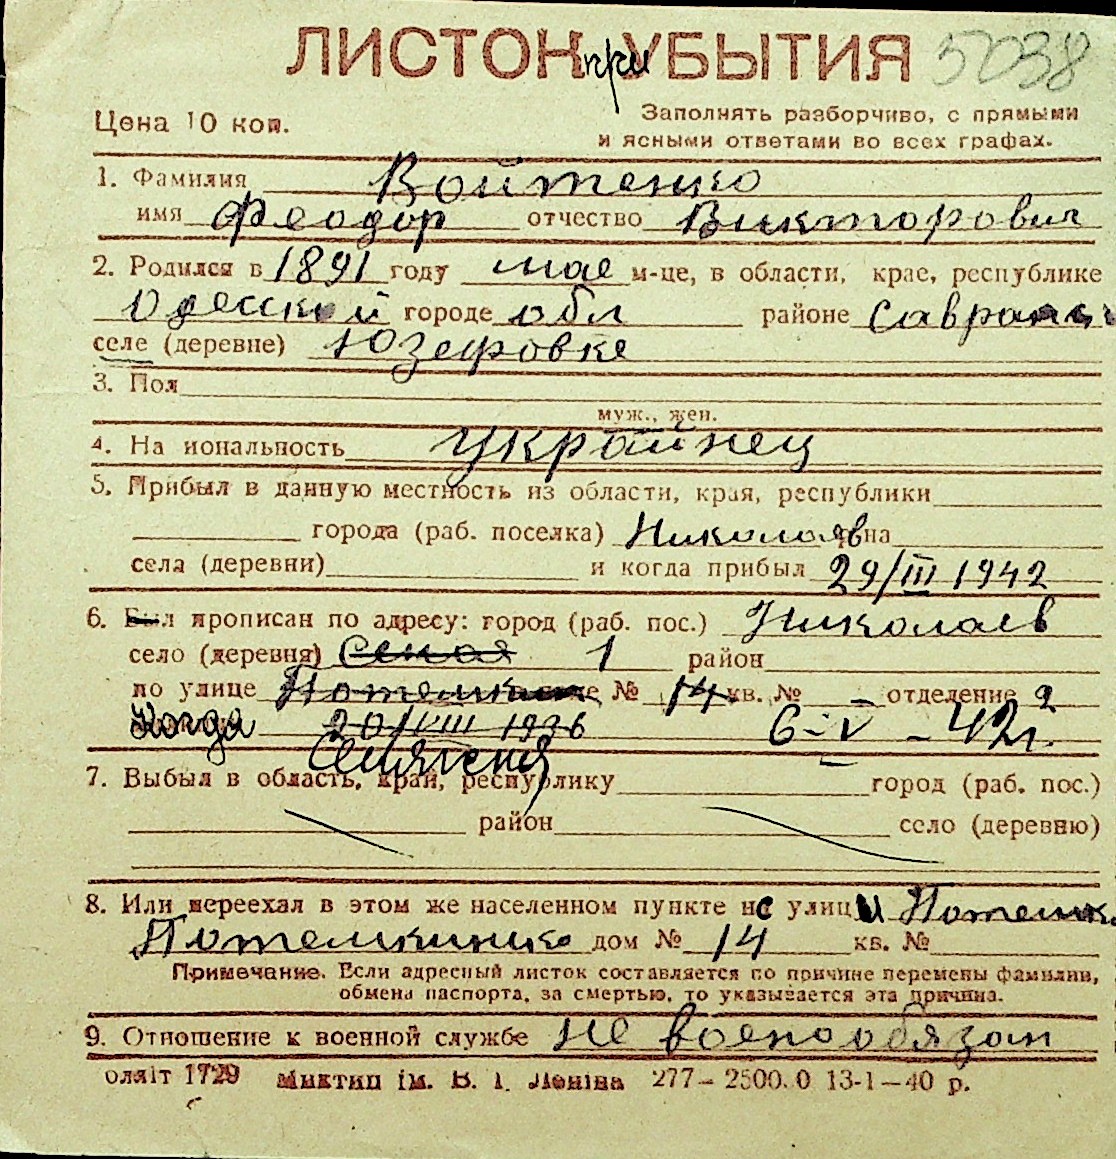 ЛИСТОК при УБЫТИЯ 5038
Цена 10 коп. Заполнять разборчиво, с прямыми
и ясными ответами во всех графах.
1. Фамилия Войтенко
имя Феодор отчество Викторович
2. Родился в 1891 году мае м-це, в области, крае, республике
Одесской городе обл районе Савранск
селе (деревне) Юзефовке
3. Пол
муж., жен.
4. На иональность украйнец
5. Прибыл в данную местность из области, края, республики
города (раб. поселка) Николаев на
села (деревни) и когда прибыл 29/III 1942
6. Был прописан по адресу: город (раб. пос.) Николаев
село (деревня) 1 район
по улице № 14 кв. № – отделение 2
Когда 20/VIII 1936 6–V–42г.
7. Выбыл в область, край, республику город (раб. пос.)
район село (деревню)
8. Или переехал в этом же населенном пункте нс улицы Потемк
Потемкинско дом № 14 кв. №
Примечание. Если адресный листок составляется по причине перемены фамилии,
обмена паспорта, за смертью, то указывается эта причина.
9. Отношение к военной службе не военообязан
оляіт 1729 Миктип ім. В. І. Леніна 277–2500.0 13-1–40 р.